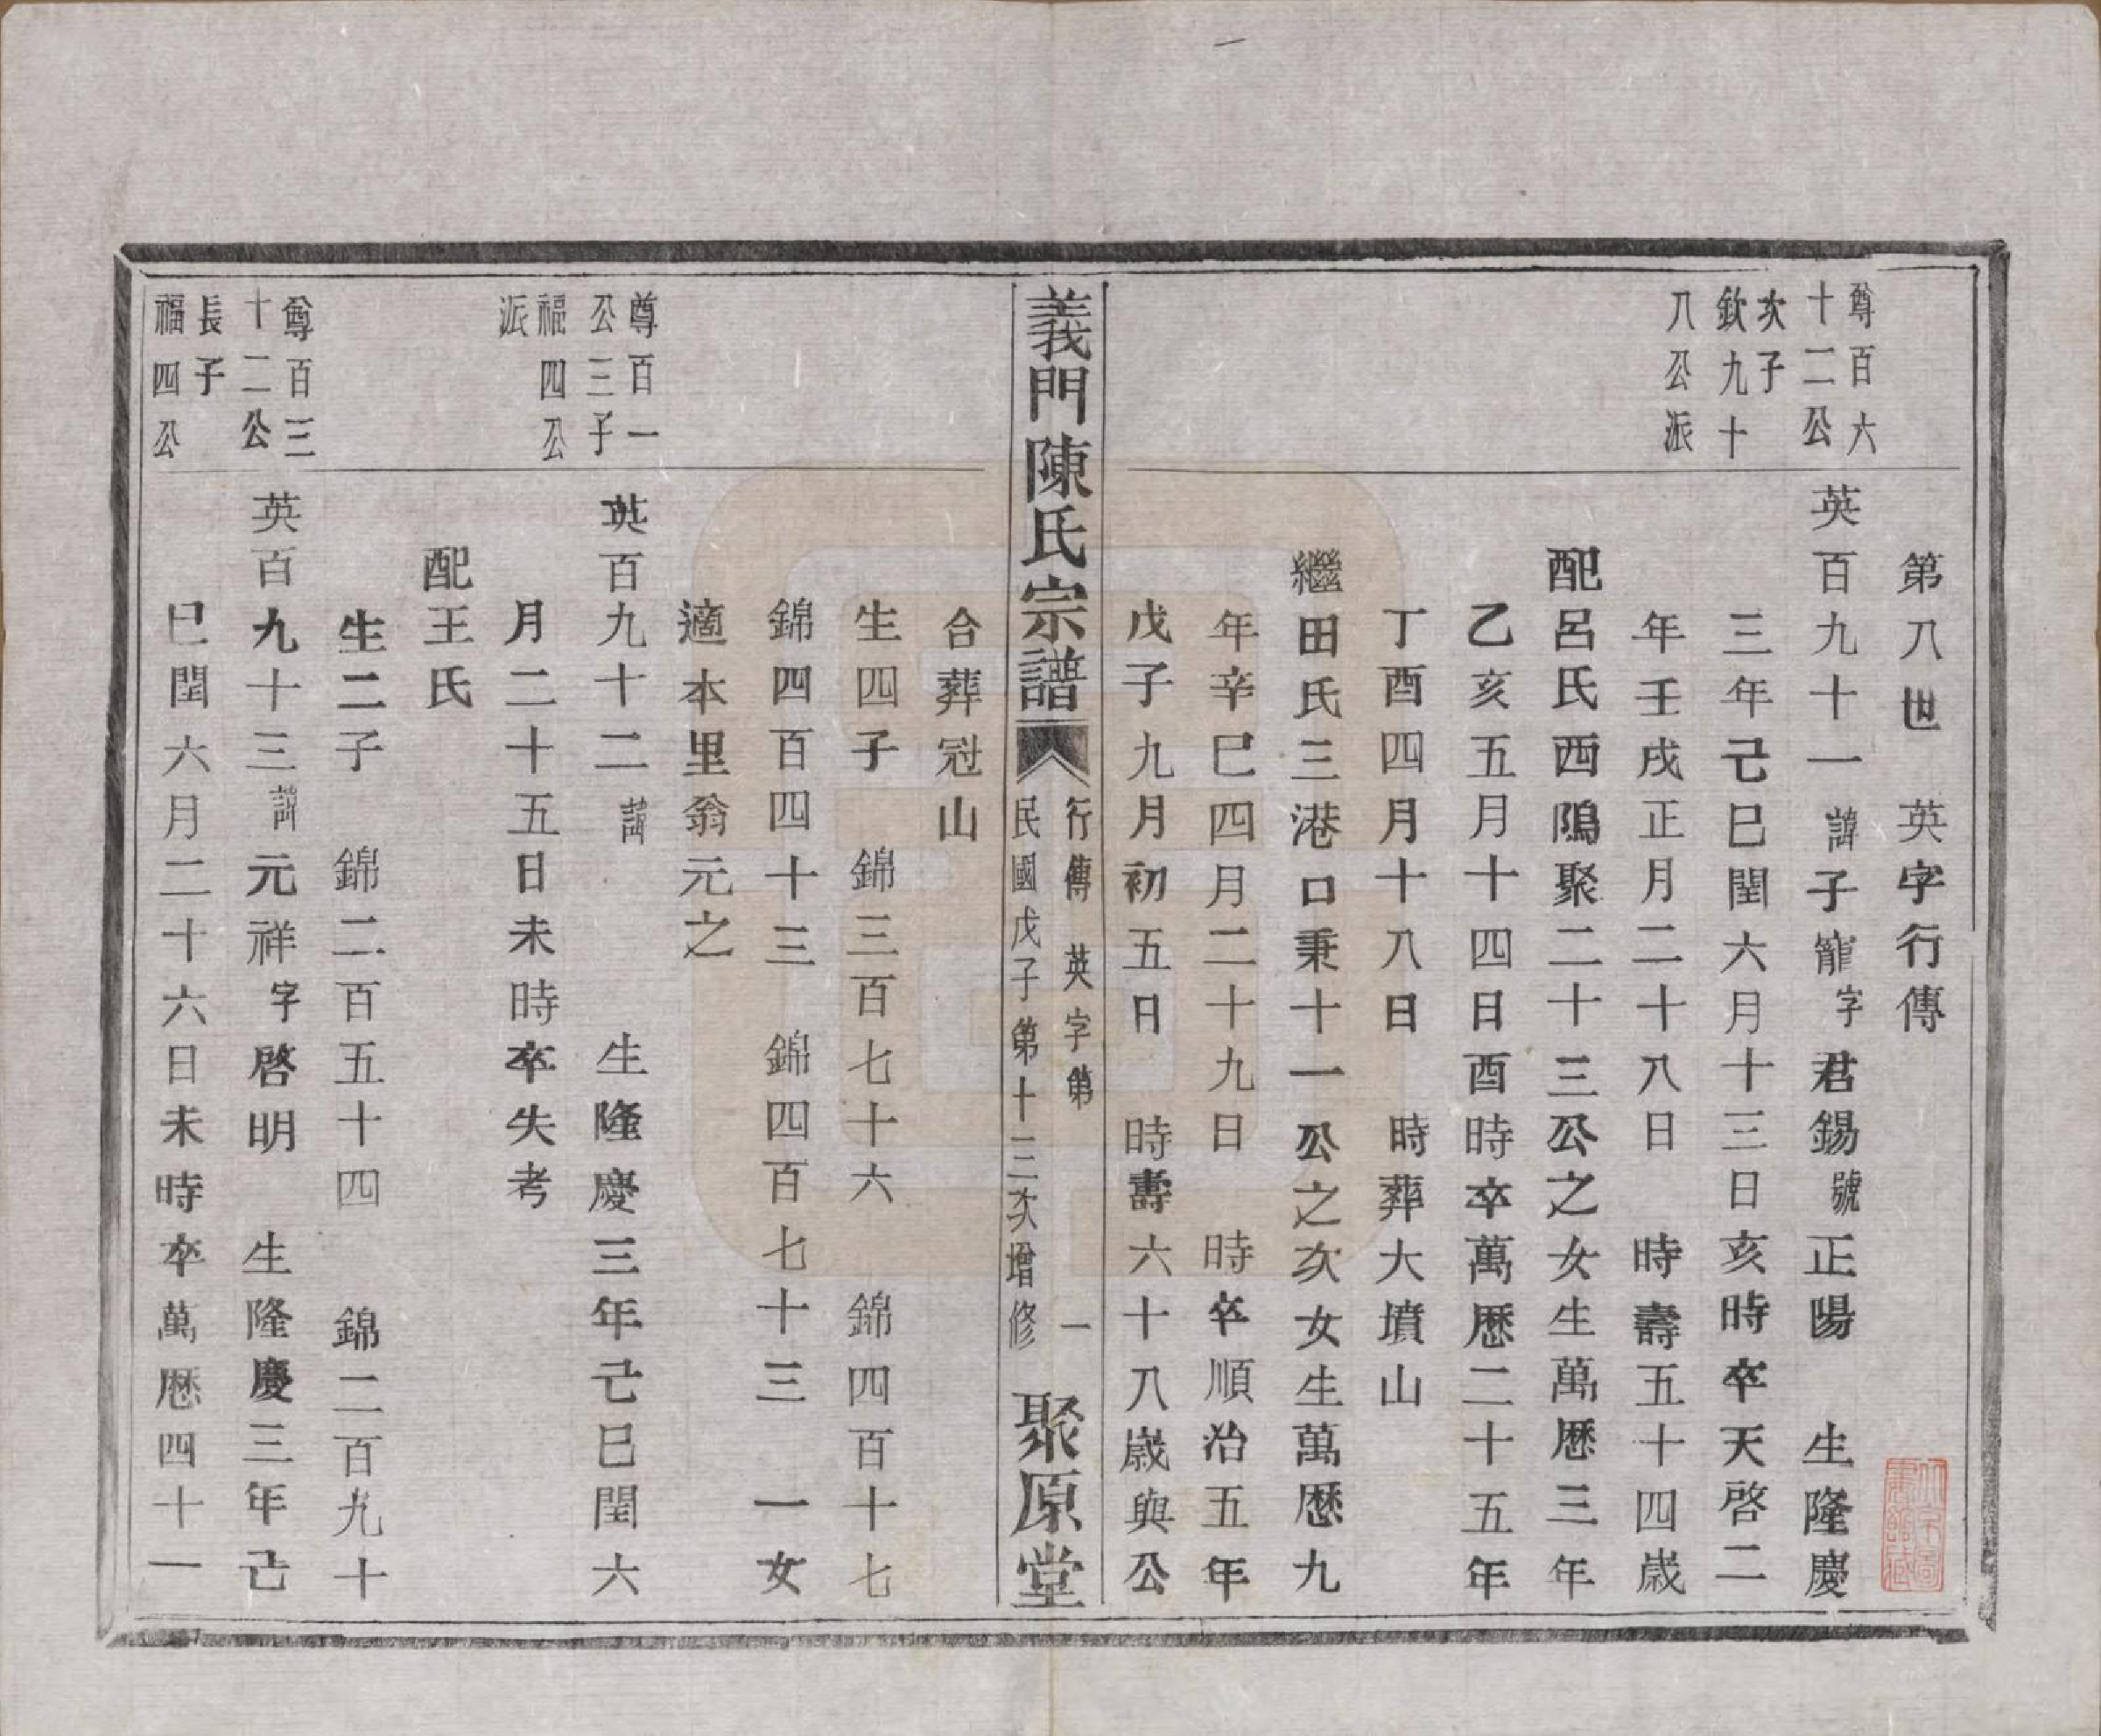 第八世 英字行傳
尊百六
十二公
次子
欽九十
八公派
英百九十一諱子寵字君錫號正陽 生隆慶
三年己巳閏六月十三日亥時卒天啓二
年壬戌正月二十八日 時壽五十四歲
配呂氏西隝聚二十三公之女生萬厯三年
乙亥五月十四日酉時卒萬厯二十五年
丁酉四月十八日 時葬大墳山
繼田氏三港口秉十一公之次女生萬厯九
年辛巳四月二十九日 時卒順治五年
戊子九月初五日 時壽六十八歲與公
義門陳氏宗譜 行傳 英字第 一
民國戊子第十三次增修 聚原堂
合葬冠山
生四子 錦三百七十六 錦四百十七
錦四百四十三 錦四百七十三 一女
適本里翁元之
尊百一
公三子
福四公
派
英百九十二諱 生隆慶三年己巳閏六
月二十五日未時卒失考
配王氏
生二子 錦二百五十四 錦二百九十
尊百三
十二公
長子
福四公
英百九十三諱元祥字啓明 生隆慶三年己
巳閏六月二十六日未時卒萬厯四十一